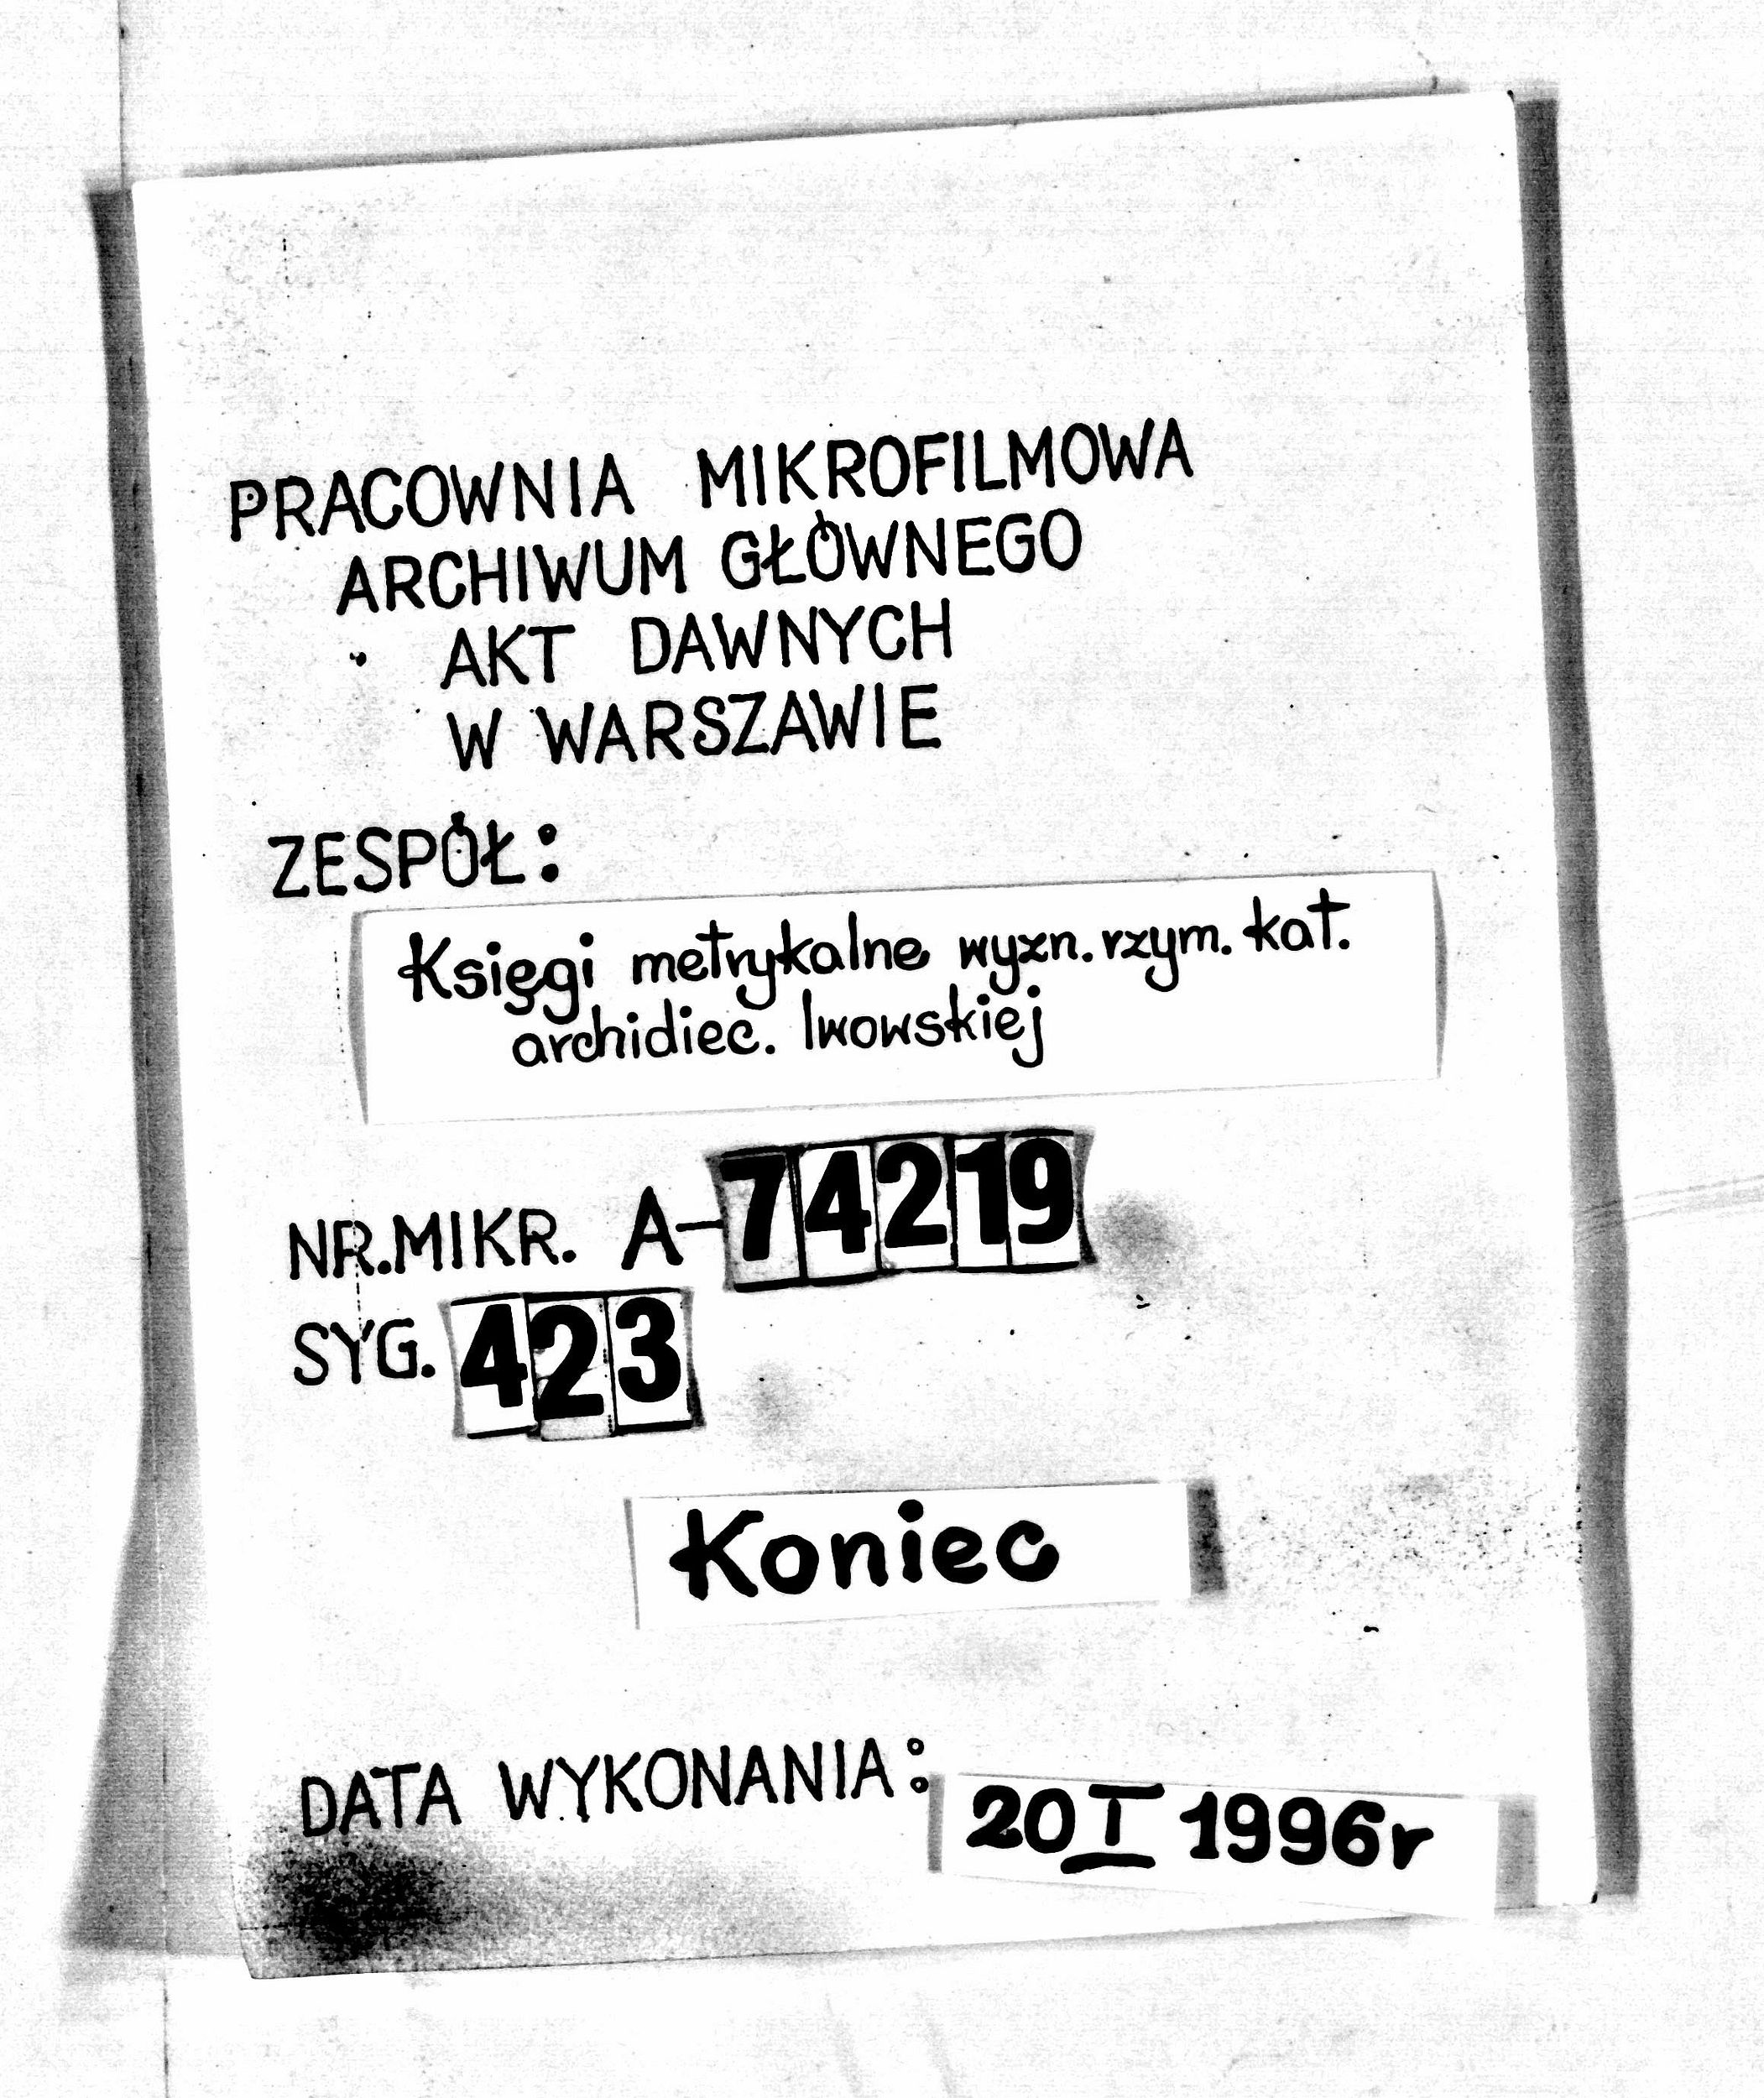 PRACOWNIA MIKROFILMOWA
ARCHIWUM GŁÓWNEGO
AKT DAWNYCH
W WARSZAWIE
ZESPÓŁ:
Księgi metrykalne wyzn. rzym. kat.
archidiec. lwowskiej
NR. MIKR. A-74219
SYG. 423
Koniec
DATA WYKONANIA: 20 I 1996r